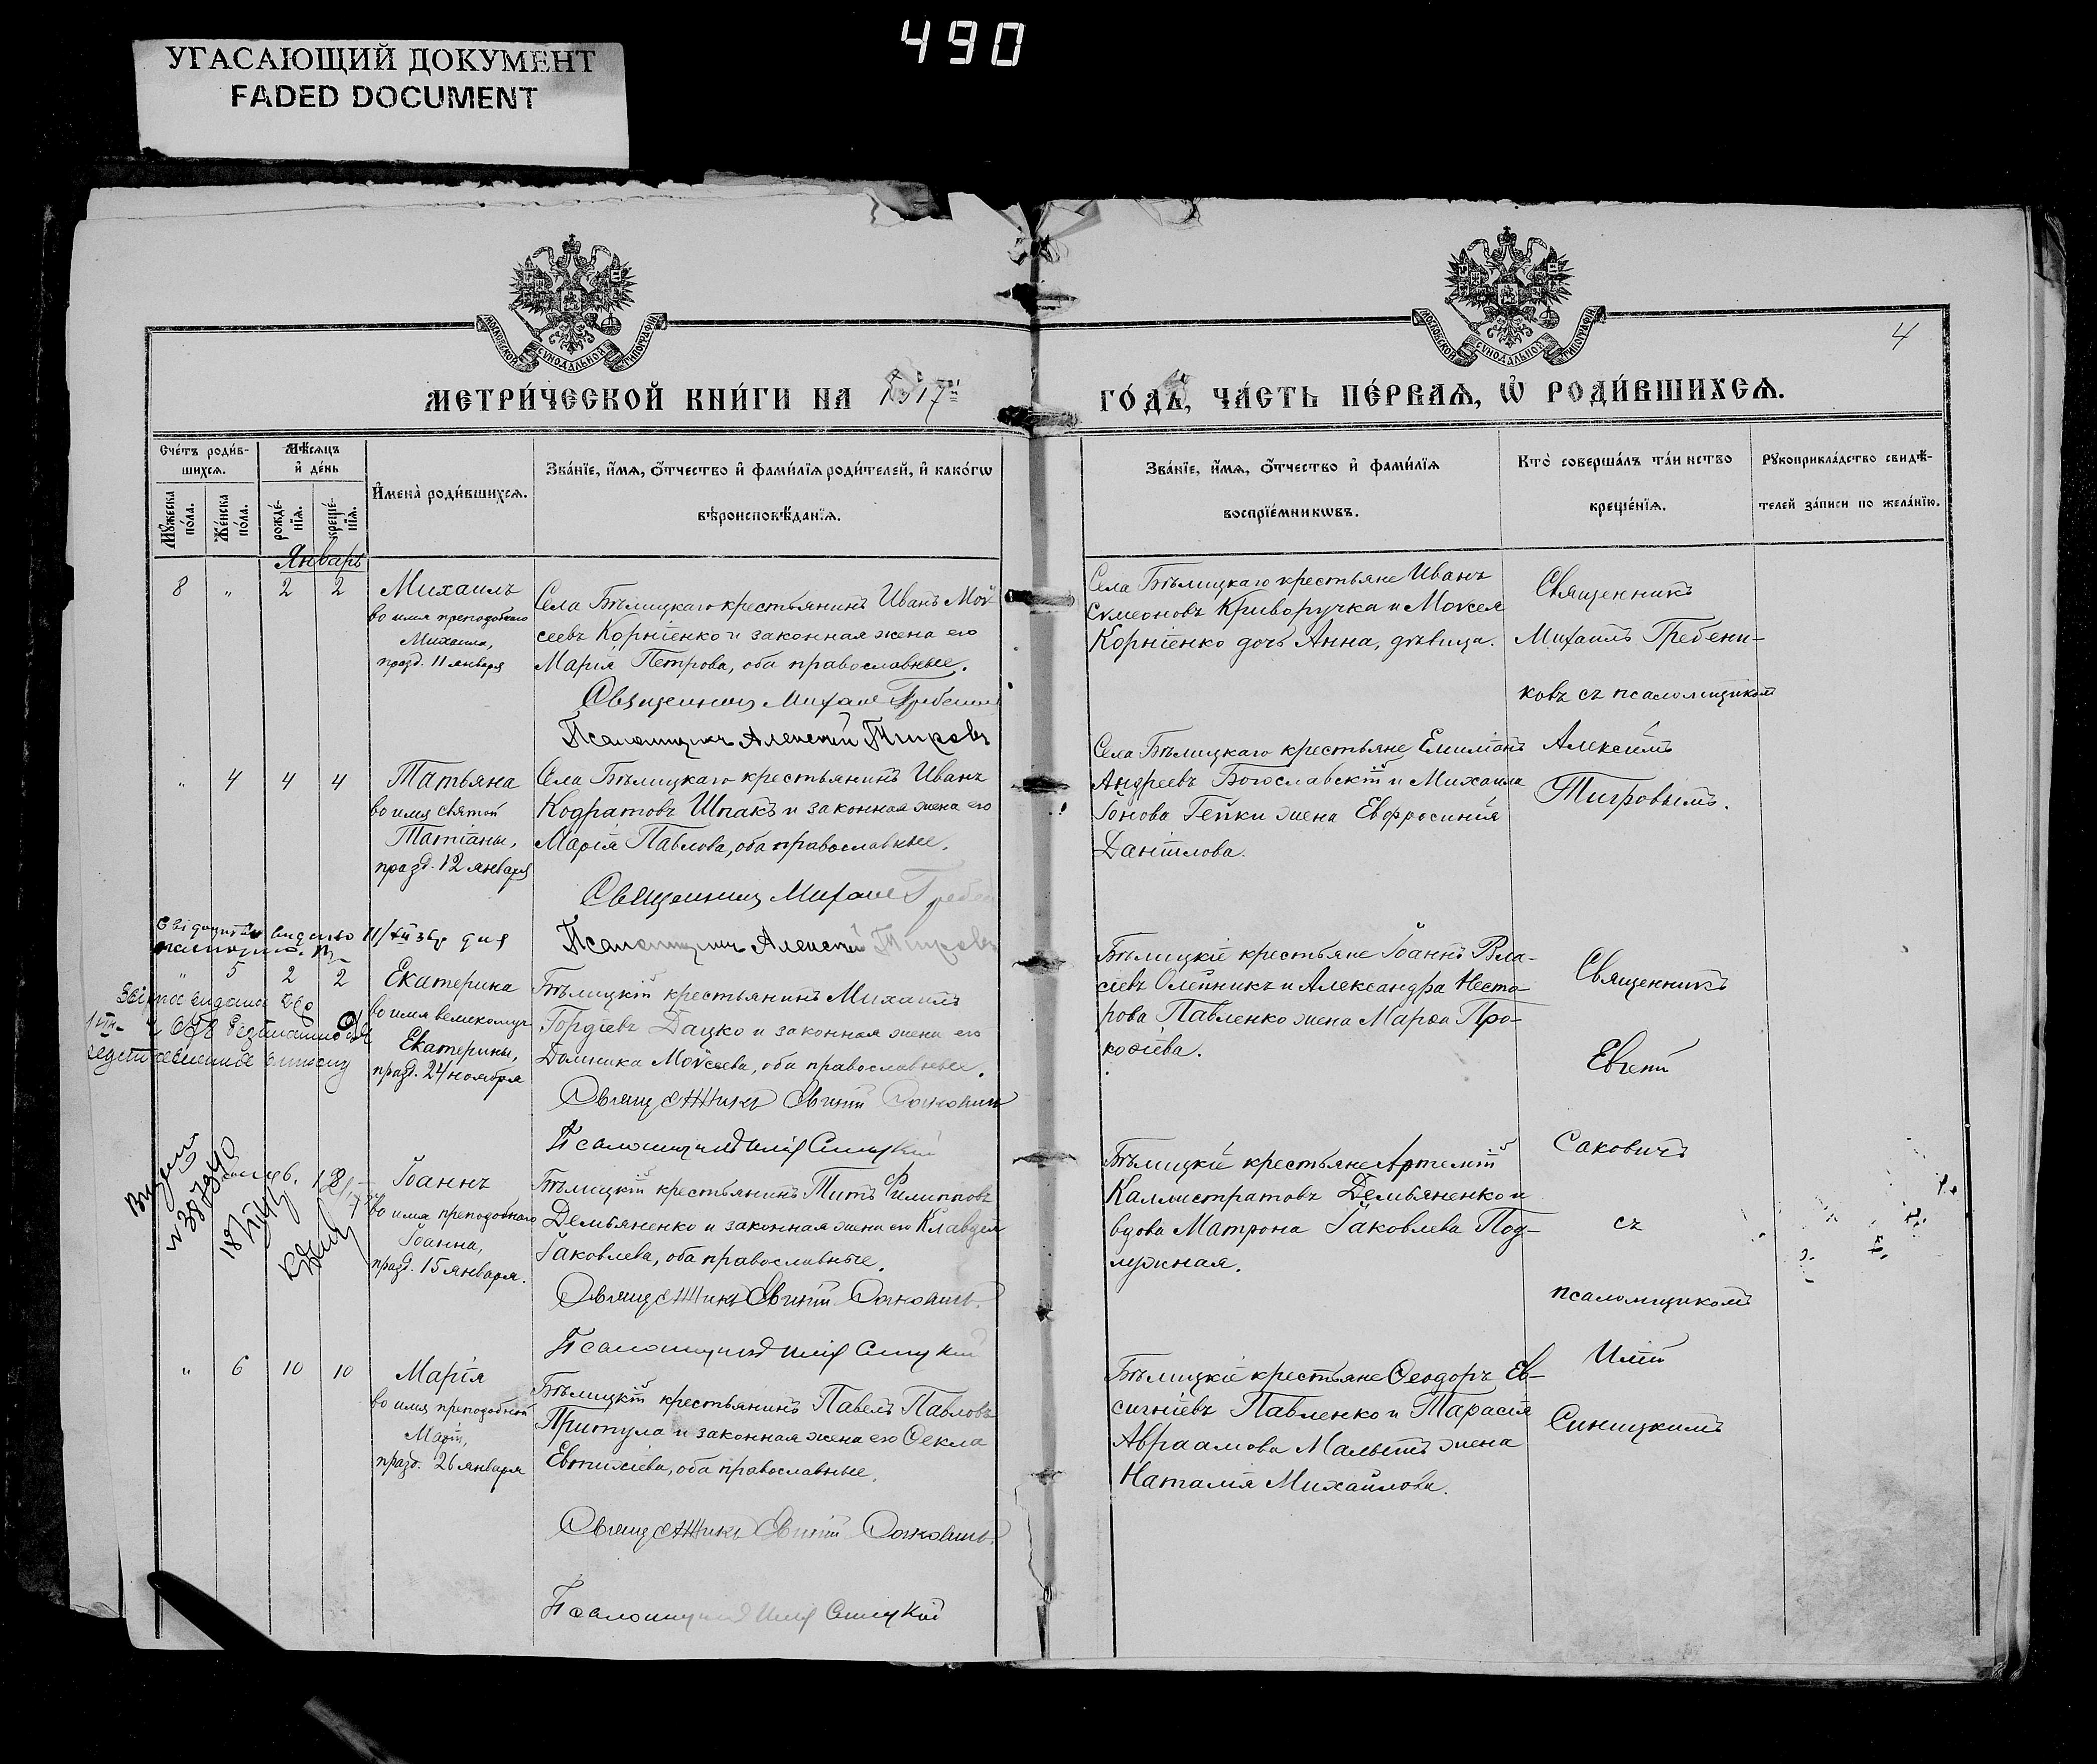 490
УГАСАЮЩИЙ ДОКУМЕНТ
FADED DOCUMENT
МОСКОВСКОЙ СѴНОДАЛЬНОЙ ТИПОГРАФІИ
МОСКОВСКОЙ СѴНОДАЛЬНОЙ ТИПОГРАФІИ
4
МЕТРИ́ЧЕСКОЙ КНИ́ГИ НА 1917й
ГО́ДЪ, ЧА́СТЬ ПЕ́РВАѦ, Ѡ҆ РОДИ́ВШИХСѦ.
Сче́тъ роди́в-
шихсѧ.
Мꙋ́жеска по́ла.
Же́нска по́ла.
Мѣ́сѧцъ
и҆ де́нь
рожде́-
нїѧ.
креще́-
нїѧ.
И҆мена̀ роди́вшихсѧ.
Зва́нїе, и҆́мѧ, ѻ҆́тчество и҆ фами́лїѧ роди́телей, и҆ како́гѡ
вѣроисповѣ́данїѧ.
Зва́нїе, и҆́мѧ, ѻ҆́тчество и҆ фами́лїѧ
воспрїе́мникѡвъ.
Кто̀ соверша́лъ та́инство
креще́нїѧ.
Рꙋкоприкла́дство свидѣ́-
телей за́писи по жела́нїю.
Январь
8 „ 2 2
Михаилъ
во имя преподобнаго
Михаила,
празд. 11 января
Села Бѣлицкаго крестьянинъ Иванъ Мοѵ̈
сеевъ Корніенко и законная жена его
Марія Петрова, оба православные.
Священникъ Михаилъ Гребени
Псаломщикъ Алексій Тигровъ
Села Бѣлицкаго крестьяне Иванъ
Сѵмеоновъ Криворучка и Моѵсея
Корніенко дочь Анна, дѣвица.
Священникъ
Михаилъ Гребени-
ковъ съ псаломщикомъ
Алексіемъ
Тигровымъ.
„ 4 4 4
Татьяна
во имя святой
Татіаны,
празд. 12 января
Села Бѣлицкаго крестьянинъ Иванъ
Кодратовъ Шпакъ и законная жена его
Марія Павлова, оба православные.
Священникъ Михаилъ Гребен
Псаломщикъ Алексій Тигровъ
Села Бѣлицкаго крестьяне Емиліанъ
Андреевъ Богославскій и Михаила
Іонова Гейки жена Евфросинія
Даніилова.
„ 5 2 2
Екатерина
во имя великомуч
Екатерины,
празд. 24 ноября
Бѣлицкій крестьянинъ Михаилъ
Гордіевъ Дацко и законная жена его
Домника Моѵсеева, оба православные.
Священникъ Евгеній Саковичъ
Псаломщикъ Илія Синицкій
Бѣлицкіе крестьяне Іоаннъ Вла-
сіевъ Олейникъ и Александра Несто-
рова Павленко жена Марѳа Про-
кофіева.
Священникъ
Евгеній
Саковичъ
съ
псаломщикомъ
Иліей
Синицкимъ
Іоаннъ
во имя преподобнаго
Іоанна,
празд. 15 января.
Бѣлицкій крестьянинъ Титъ Филипповъ
Демьяненко и законная жена его Клавдія
Іаковлева, оба православные.
Священникъ Евгеній Саковичъ.
Псаломщикъ Илія Синицкій
Бѣлицкіе крестьяне Артемій
Каллистратовъ Демьяненко и
вдова Матрона Іаковлева Под-
лужная.
„ 6 10 10
Марія
во имя преподобной
Маріи,
празд. 26 января
Бѣлицкій крестьянинъ Павелъ Павловъ
Притула и законная жена его Ѳекла
Евтихіева, оба православные.
Священникъ Евгеній Саковичъ.
Псаломщикъ Илія Синицкій
Бѣлицкіе крестьяне Ѳеодоръ Ев-
сигніевъ Павленко и Тарасія
Авраамова Малышъ жена
Наталія Михайлова.